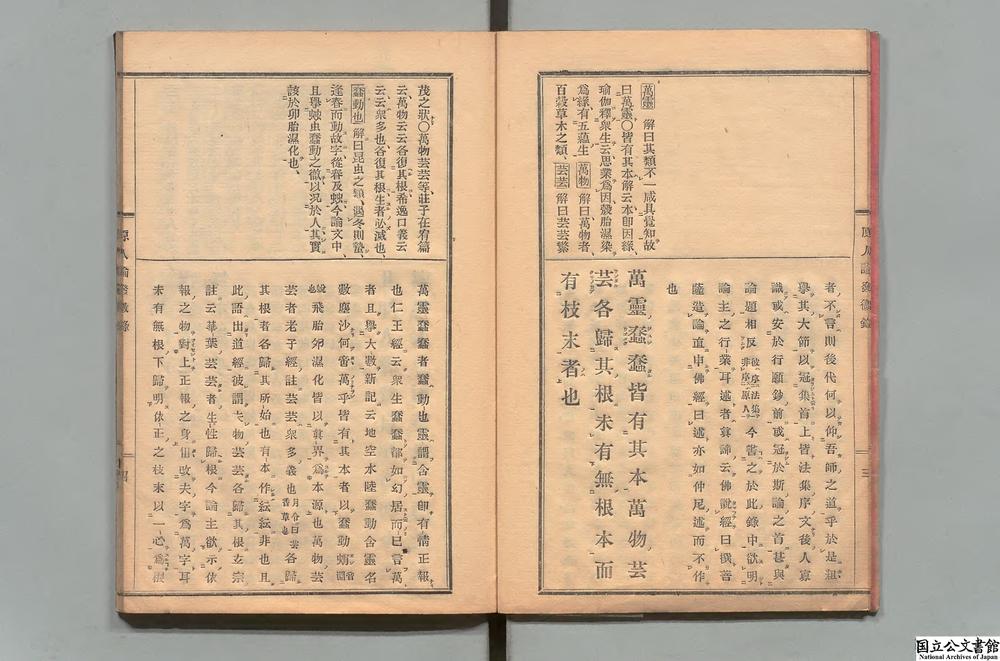 萬靈 解曰其類不一咸具覺知故
曰萬靈〇皆有其本解云本即因緣
瑜伽釋衆生云思業爲因殼胎濕染
爲緣有五蘊生 萬物 解曰萬物者
百穀草木之類、芸芸 解曰芸芸繁
者不言則後代何以仰吾師之道乎於是粗
擧其大節以冠集首上皆法集序文後人寡
識或安於行願鈔前或冠於斯論之首甚與
論題相反彼序法集非序原人今書之於此錄中欲明
論主之行業耳述者眞諦云佛說經曰撰菩
薩造論直申佛經曰述亦如仲尼述而不作
也
萬靈蠢蠢皆有其本萬物芸
芸各歸其根未有無根本而
有枝末者也
三
茂之狀〇萬物芸芸等莊子在宥篇
云萬物云云各復其根希逸口義云
云云衆多也各復其根生者必滅也、
蠢動也 解曰昆虫之類、遇冬則蟄、
逢春而動故字從春及䖵今論文中、
且擧䖵虫蠢動之微以况於人其實
該於卵胎濕化也、
萬靈蠢蠢者蠢動也靈謂含靈卽有情正報
也仁王經云衆生蠢蠢都如幻居而已言萬
者且擧大數新記云地空水陸蠢動含靈名
數塵沙何啻萬乎皆有其本者以蠢動蜎
飛胎卵濕化皆以眞界爲本源也萬物芸
芸者老子經註芸芸衆多義也月令曰芸香草也各歸
其根者各歸其所始也有本作紜紜非也且
此語出道經彼謂夫物芸芸各歸其根玄宗
註云華葉芸芸者生性歸根今論主欲示依
報之物對上正報之身但改夫字爲萬字耳
未有無根下歸明依正之枝末以一心爲根
原人論發微錄
国立公文書館
National Archives of Japan